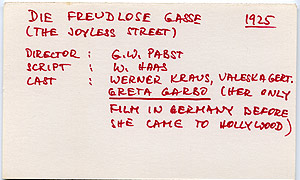 DIE FREUDLOSE GASSE 1925
(THE JOYLESS STREET)
DIRECTOR : G.W. PABST
SCRIPT : W. HAAS
CAST : WERNER KRAUS, VALESKA GERT.
GRETA GARBO (HER ONLY
FILM IN GERMANY BEFORE
SHE CAME TO HOLLYWOOD)